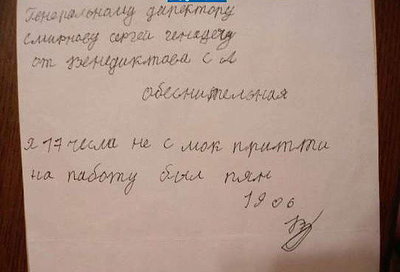 Генеральному директору
Смирнову сергей генадечу
от Венедиктова С А
обеснителъная
я 17 чесла не с мок притти
на работу был пян
19 06